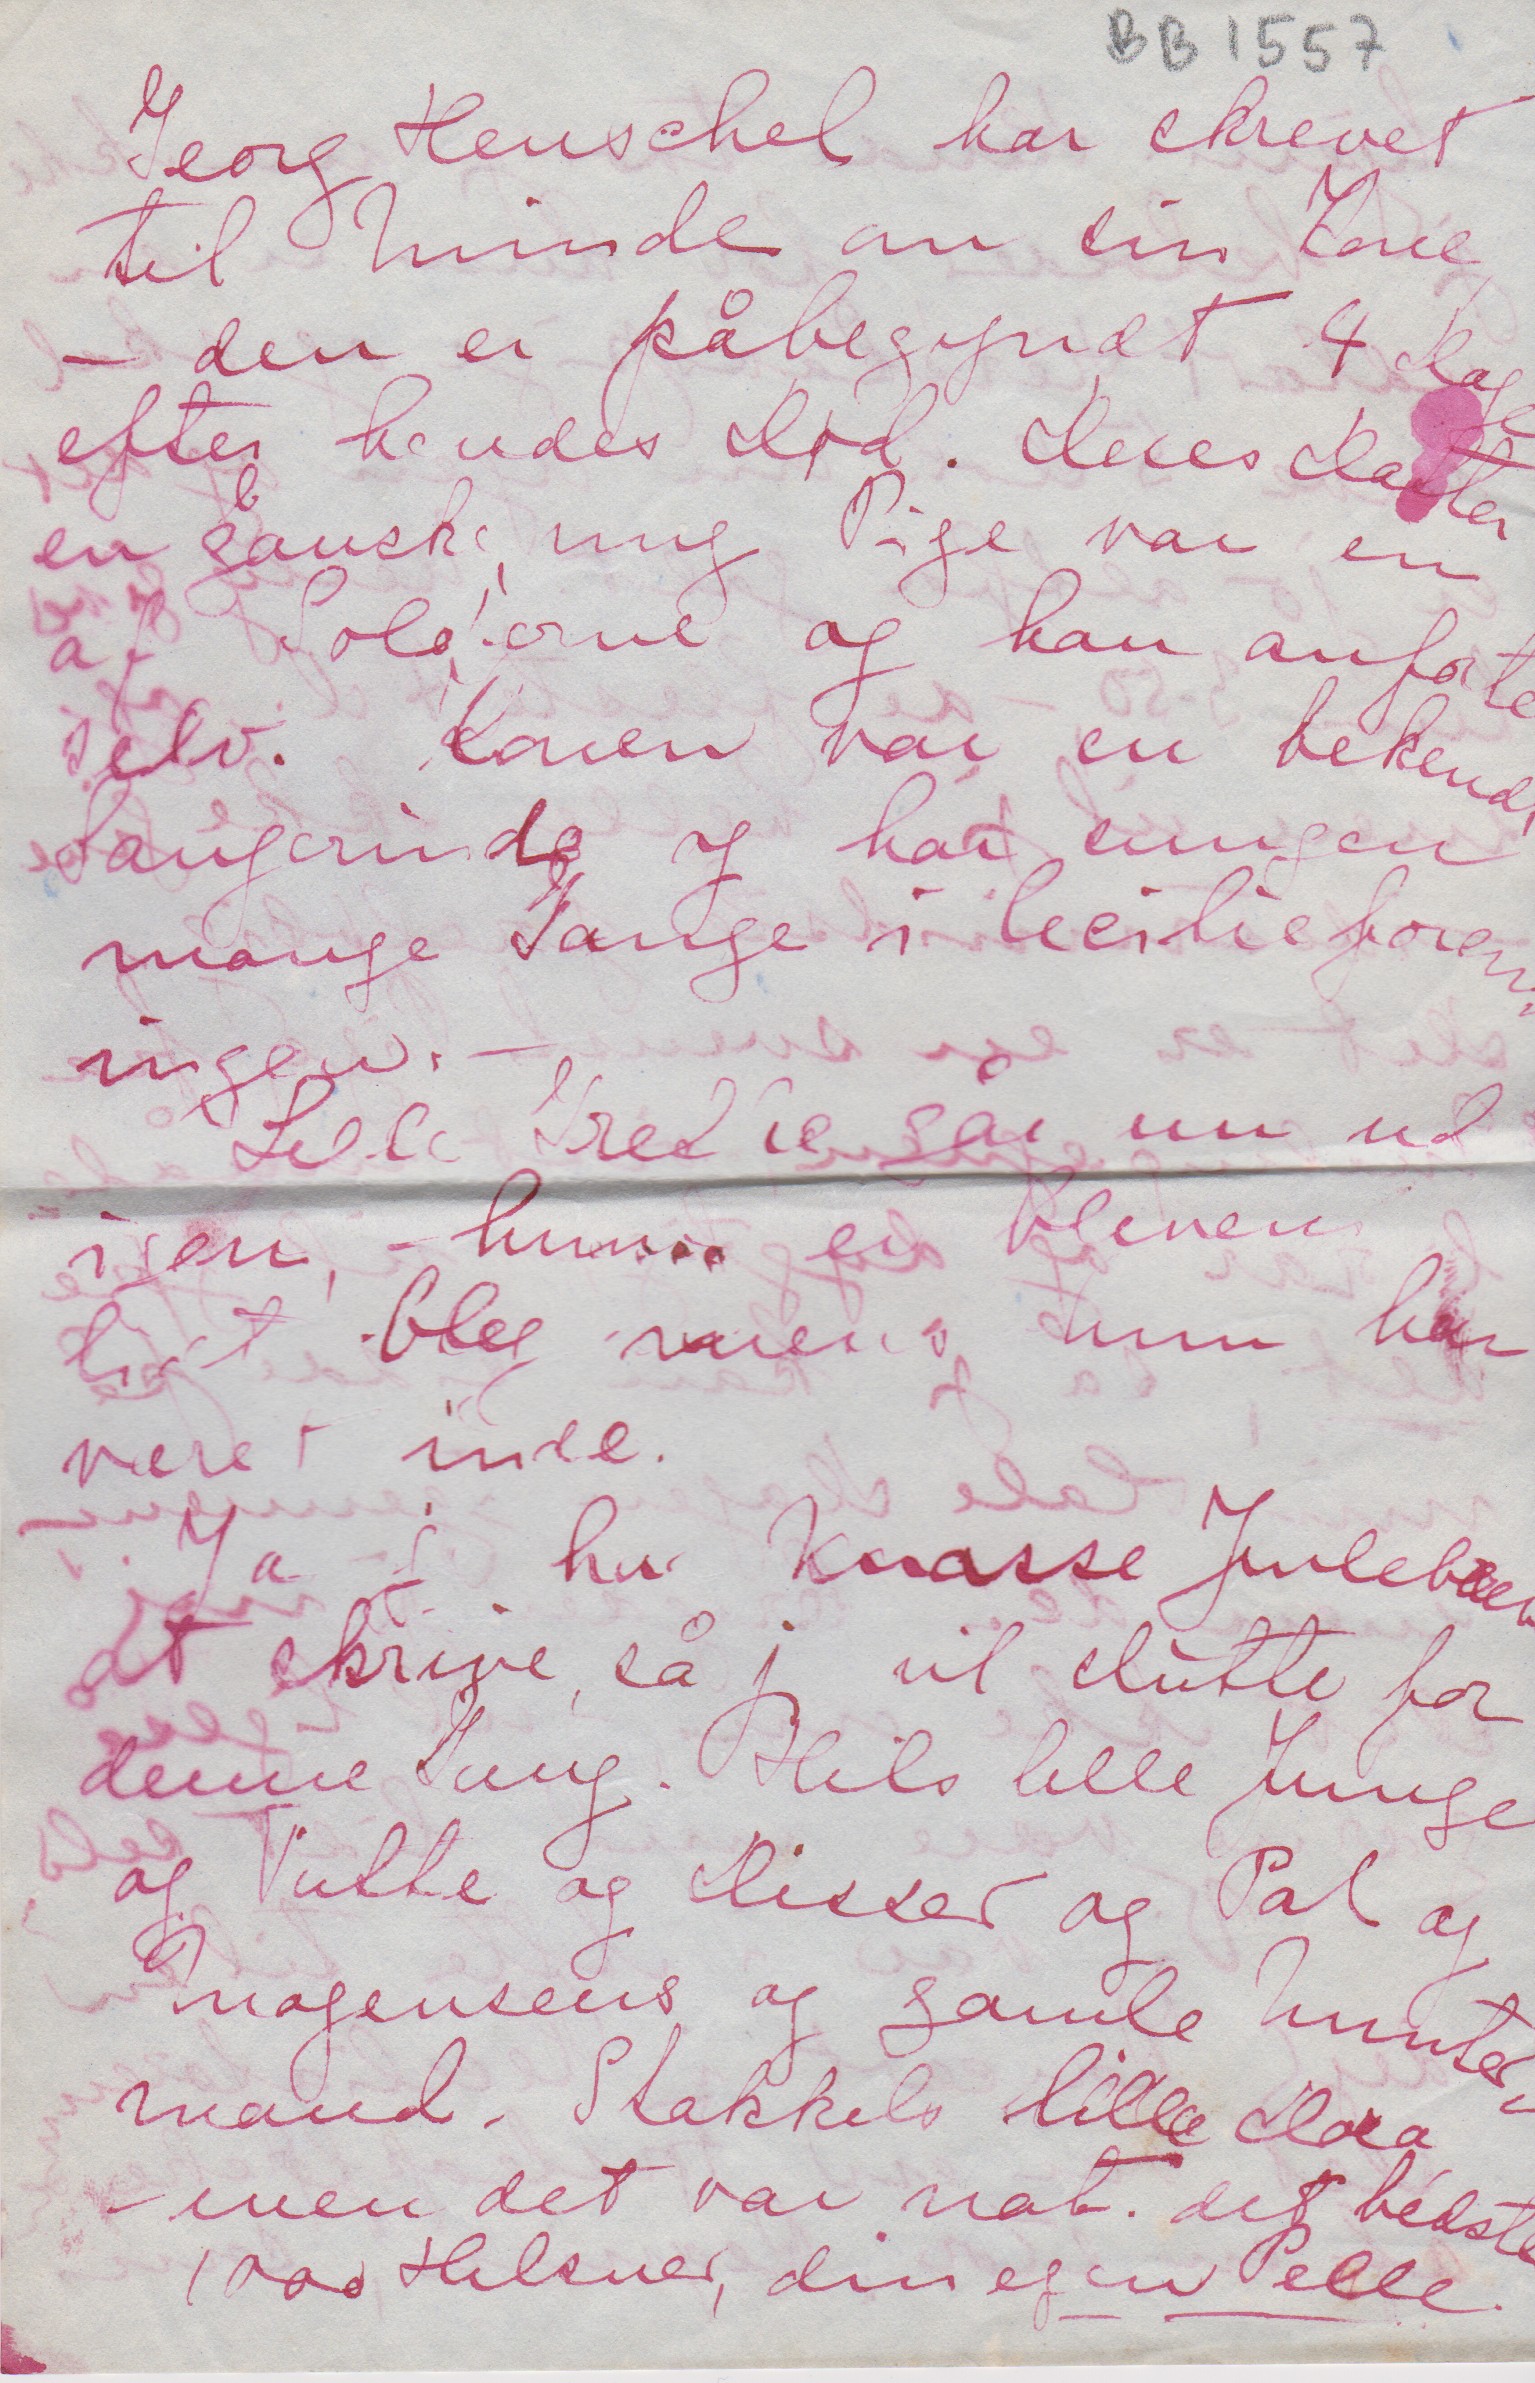 BB 1557
Georg Henschel har skrevet
til Minde om sin Kone,
– den er påbegyndt 4 Dage
efter hendes Død. Deres Datter
en ganske ung Pige var en
af Solisterne og han anførte
selv. Konen var en bekendt
Sangerinde og har sungen
mange Gange i Ceciliefore-
ingen. –
Lille Grethe går nu ud
igen, – hun er bleven
lidt bleg mens hun har
været inde.
Ja j. har Knasse Julebreve
at skrive, så j vil slutte for
denne Gang. Hils lille Junge
og Tutte og Disser og Pal og
Mogensens og gamle Munter-
mand. Stakkels lille Dora
– men det var nat. det bedste
1000 Hilsner, din egen Pelle.